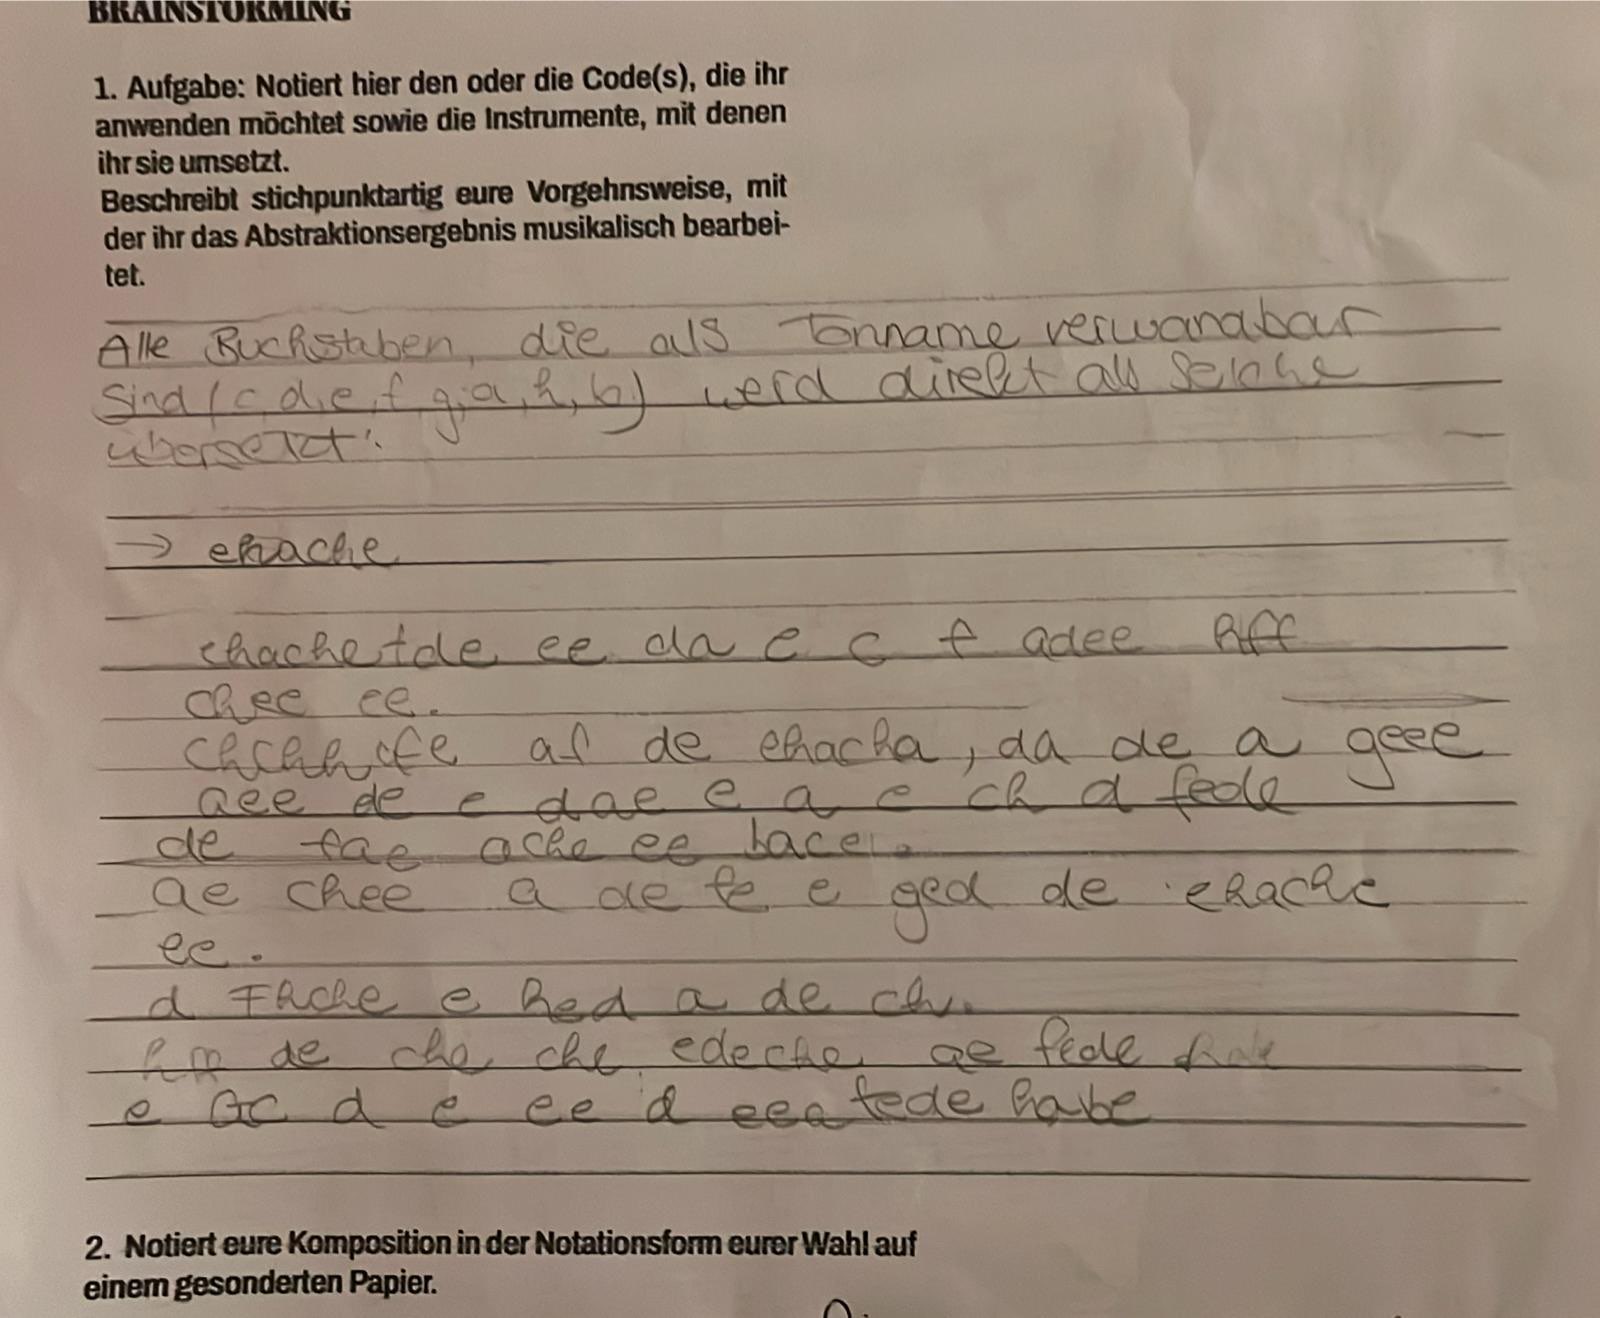 BRAINSTORMING
1. Aufgabe: Notiert hier den oder die Code(s), die ihr
anwenden möchtet sowie die Instrumente, mit denen
ihr sie umsetzt.
Beschreibt stichpunktartig eure Vorgehnsweise, mit
der ihr das Abstraktionsergebnis musikalisch bearbei-
tet.
Alle Buchstaben, die als Tonname verwandbar
sind (c, d, e, f, g, a, h, b) werd direkt als Solche
übersetzt:
→ ehache
ehachetde ee da e c f adee hff
chee ee.
af de ehacha, da de a geee
aee de e dae e a e ch d fede
de fae ache ee bace.
ae chee a de fe e ged de ehache
ee.
d Fhche e hed a de ch.
de cha che edeche ae fede
e ac d e ee d eea fede habe
2. Notiert eure Komposition in der Notationsform eurer Wahl auf
einem gesonderten Papier.